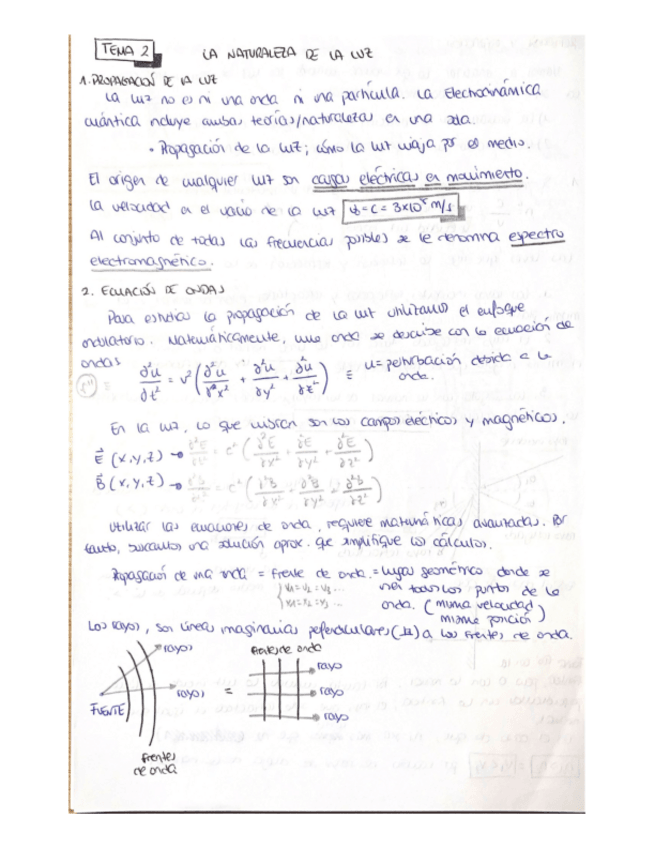 TEMA 2 LA NATURALEZA DE LA LUZ
1. PROPAGACIÓN DE LA LUZ
La luz no es ni una onda ni una partícula. La Electrodinámica
cuántica incluye ambas teorías/naturalezas en una sola.
• Propagación de la luz; cómo la luz viaja por el medio.
El origen de cualquier luz son cargas eléctricas en movimiento.
La velocidad en el vacío de la luz v=c=3x10⁸ m/s
Al conjunto de todas las frecuencias posibles se le denomina espectro
electromagnético.
2. ECUACIÓN DE ONDAS
Para estudiar la propagación de la luz utilizamos el enfoque
ondulatorio. Matemáticamente, una onda se describe con la ecuación de
ondas
∂²u/∂t² = v² (∂²u/∂x² + ∂²u/∂y² + ∂²u/∂z²) ≡ u = perturbación debida a la
onda.
En la luz, lo que vibran son los campos eléctricos y magnéticos.
E⃗ (x,y,z) → ∂²E/∂t² = c² (∂²E/∂x² + ∂²E/∂y² + ∂²E/∂z²)
B⃗ (x,y,z) → ∂²B/∂t² = c² (∂²B/∂x² = ∂²B/∂y² = ∂²B/∂z²)
Utilizar las ecuaciones de onda, requiere matemáticas avanzadas. Por
tanto, buscamos una solución aprox. que simplifique los cálculos.
Propagación de una onda = frente de onda = lugar geométrico donde se
todos los puntos de la
onda. (misma velocidad
misma posición)
Los rayos, son líneas imaginarias perpendiculares a los frentes de onda.
frentes de onda
rayos
rayo
rayos = rayo
FUENTE
rayo
frentes
de onda